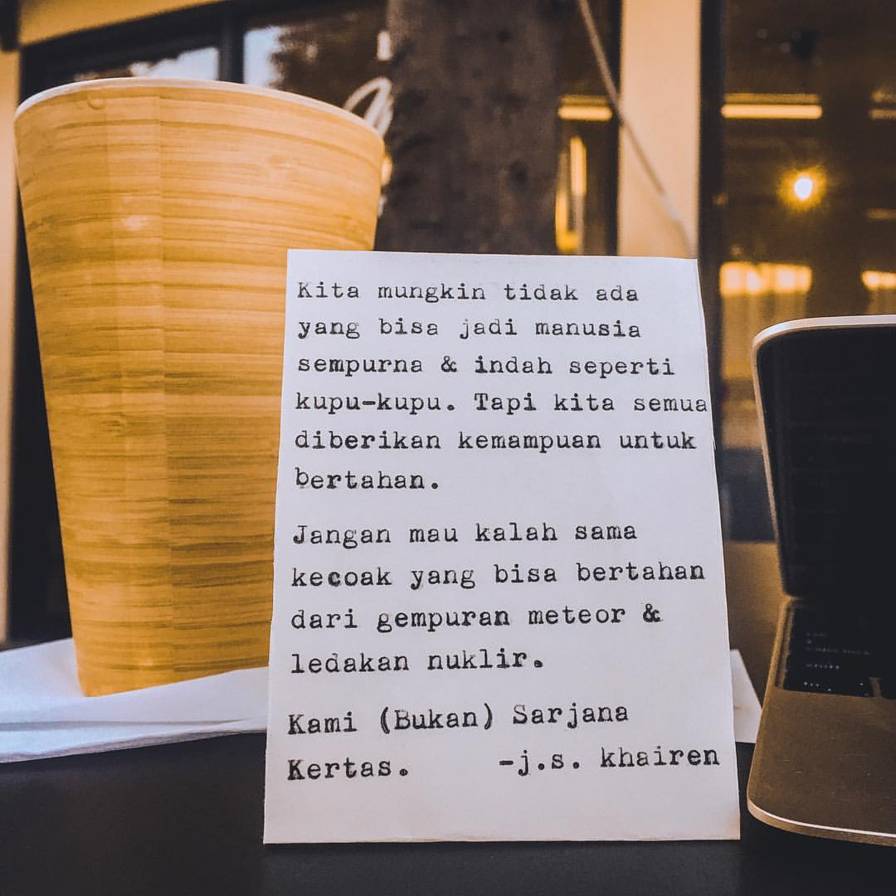 Kita mungkin tidak ada
yang bisa jadi manusia
sempurna & indah seperti
kupu-kupu. Tapi kita semua
diberikan kemampuan untuk
bertahan.
Jangan mau kalah sama
kecoak yang bisa bertahan
dari gempuran meteor &
ledakan nuklir.
Kami (Bukan) Sarjana
Kertas. -j.s. khairen